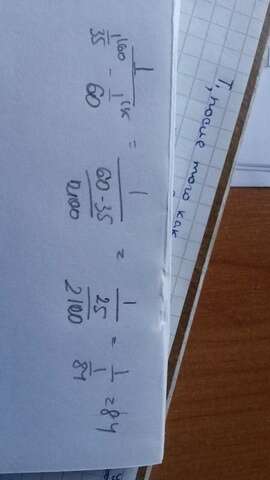 Т, после того как
1/(1/35 - 1/60) = 1/((60-35)/2100) = 1/(25/2100) = 1/(1/84) = 84